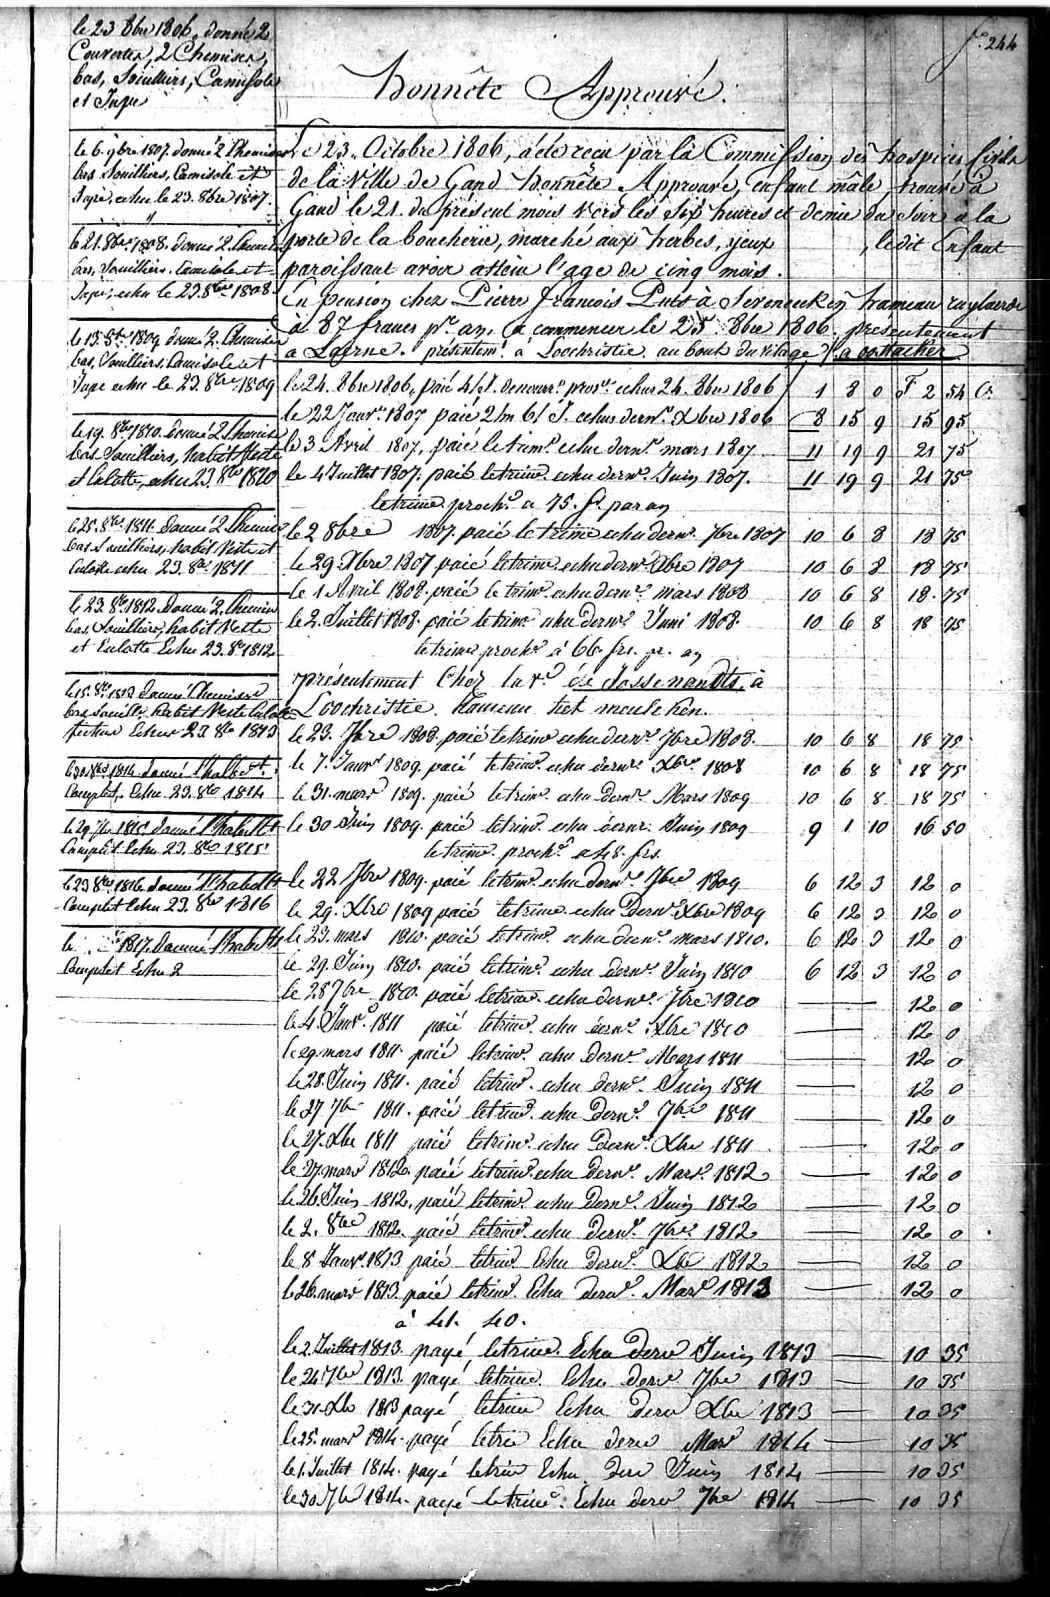 fo. 244
Honnête Approuvé.
le 23 8bre 1806, donné 2
Couvertes, 2 Chemises,
bas, Souilliers, Camisole
et Jupe
le 6. 9bre 1807. donné 2 Chemises
bas Souilliers, Camisole et
Jupe, echu le 23. 8bre 1807.
le 21. 8bre 1808. donné 2. Chemises
bas, Souilliers. Camisole et
Jupe; echu le 23. 8bre 1808.
le 13. 8bre 1809 donné 2. Chemises
bas, Souilliers, Camisole et
Jupe echu le 23. 8bre 1809
le 19. 8bre 1810. donné 2. Chemise
bas Souilliers, habit Veste
et Culotte, echu 23. 8bre 1810
le 25. 8bre 1811. donné 2. Chemise
bas Souilliers, habit Veste et
Culotte echu 23. 8bre 1811
le 23. 8bre 1812. donné 2. Chemise
bas Souilliers, habit Veste
et Culotte Echu 23. 8bre 1812
le 15. 8bre 1813 donné Chemises
bas souill. habit Veste Culotte
Echu 23. 8bre 1813
1814 donné l'habillt.
Complet. Echu 23. 8bre 1814
le 29 7bre 1815 donné l'habillt
Complet Echu 23. 8bre 1815
le 23 8bre 1816 donné l'habillt
Complet Echu 23. 8bre 1816
le 1817. donné l'habillt
Complet Echu 2
Le 23. Octobre 1806, a été reçu par la Commission des hospices Civils
de la Ville de Gand Honnête Approuvé, enfant mâle trouvé à
Gand le 21. du présent mois vers les Six heures et demie du Soir a la
porte de la boucherie, marché aux herbes, yeux , ledit Enfant
paroissant avoir atteint l'age de cinq mois.
En pension chez Pierre francois Puts à Sevenecken hameau
à 87 francs pr. an, a commencer le 25 8bre 1806. presentement
a Laerne. présentemt. à Loochristie au bout du vilage,
le 24. 8bre 1806, paié 4/s J. echus 24. 8bre 1806 1 8 0 F 2 54 C.
le 22 Janvr. 1807 paié 2 m 6/ J. echus dernr. Xbre 1806 8 15 9 15 95
le 3 Avril 1807, paié le trimr. echu dernr. mars 1807 11 19 9 21 75
le 4 Juillet 1807. paié le trime echu dernr. Juin 1807. 11 19 9 21 75
le trime prochr. a 75. fr. par an
le 2 8bre 1807. paié le trime echu dernr. 7bre 1807 10 6 8 18 75
le 29. Xbre 1807 paié le trime. echu dernr. Xbre 1807 10 6 8 18 75
le 1 Avril 1808. paié le trimr. echu dernr. mars 1808 10 6 8 18. 75
le 2. Juillet 1808. paié le trimr echu dernr. Juni 1808. 10 6 8 18 75
le trime prochr à 66. frs. pr. an
présentement Chez la ve. à
Loochristie. hameau
le 23. 7bre 1808. paié le trimr echu dernr. 7bre 1808. 10 6 8 18 75
le 7. Janvr 1809. paié le trimr. echu dernr. Xbre. 1808 10 6 8 18 75
le 31. mars 1809. paié le trimr. echu dernr. Mars 1809 10 6 8 18 75
le 30 Juin 1809. paié le trimr. echu dernr. Juin 1809 9 1 10 16 50
le trime. prochr. a 48. frs.
le 22 7bre 1809. paié le trimr. echu dernr. 7bre 1809 6 12 3 12 0
le 29. Xbre 1809 paié le trime. echu dernr. Xbre 1809 6 12 3 12 0
le 23. mars 1810. paié le trimr. echu dernr. mars 1810. 6 12 3 12 0
le 29. Juin 1810. paié le trimr. echu dernr. Juin 1810 6 12 3 12 0
le 28 7bre 1810. paié le trime. echu dernr. 7bre 1810 12 0
le 4. Janvr. 1811 paié le trimr. echu dernr. Xbre 1810 12 0
le 29. mars 1811. paié le trimr. echu dernr. Mars 1811 12 0
le 28. Juin 1811. paié le trimr. echu dernr. Juin 1811 12 0
le 27 7bre 1811. paié le trimr. echu dernr. 7bre 1811 12 0
le 27. Xbre 1811 paié le trimr. echu dernr. Xbre 1811 12 0
le 27. mars 1812. paié le trimr. echu dernr. Mars. 1812 12 0
le 26. Juin 1812. paié le trimr. echu dernr. Juin 1812 12 0
le 2. 8bre 1812. paié le trimr. echu dernr. 7bre 1812 12 0
le 8 Janvr. 1813 paié le trimr. Echu dernr. Xbre 1812 12 0
le 26. mars 1813. paié le trimr. Echu dernr. Mars 1813 12 0
à 41. 40.
le 2. Juillet 1813. payé le trime. Echu derne Juin 1813 10 35
le 24 7bre 1813. payé le trime. Echu derne 7bre 1813 10 35
le 31. Xbre 1813 payé le trime Echu derne Xbre 1813 10 35
le 25. mars 1814. payé le trie Echu derne Mars 1814 10 35
le 1. Juillet 1814. payé le trim Echu dere Juin 1814 10 35
le 30. 7bre 1814. payé le trime. Echu derne 7bre 1814 10 35